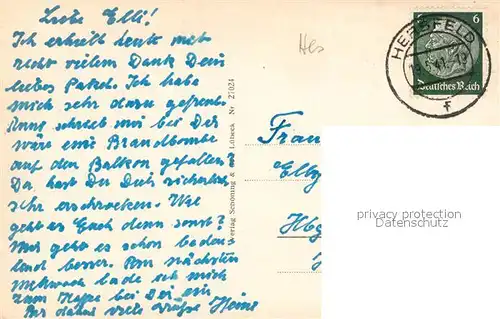 Liebe Elli!
Ich erhielt heute mit
recht vielem Dank Dein
liebes Paket. Ich habe
mich sehr dazu gefreut.
Anny schrieb mir bei Dir
wäre eine Brandbombe
auf den Balkon gefallen
Da hast Du Dich sicherlich
sehr erschrocken. Wie
geht es Euch denn sonst?
Mir geht es schon bedeu-
tend besser. Am nächsten
Mittwoch lade ich mich
zum Kaffee bei Dir ein
Bis dahin viele Grüße Heini
Verlag Schöning & Lübeck. Nr. 27024
Hes
HERSFELD
6
Deutsches Reich
f
Frau
Elly
Hbg
privacy protection
Datenschutz